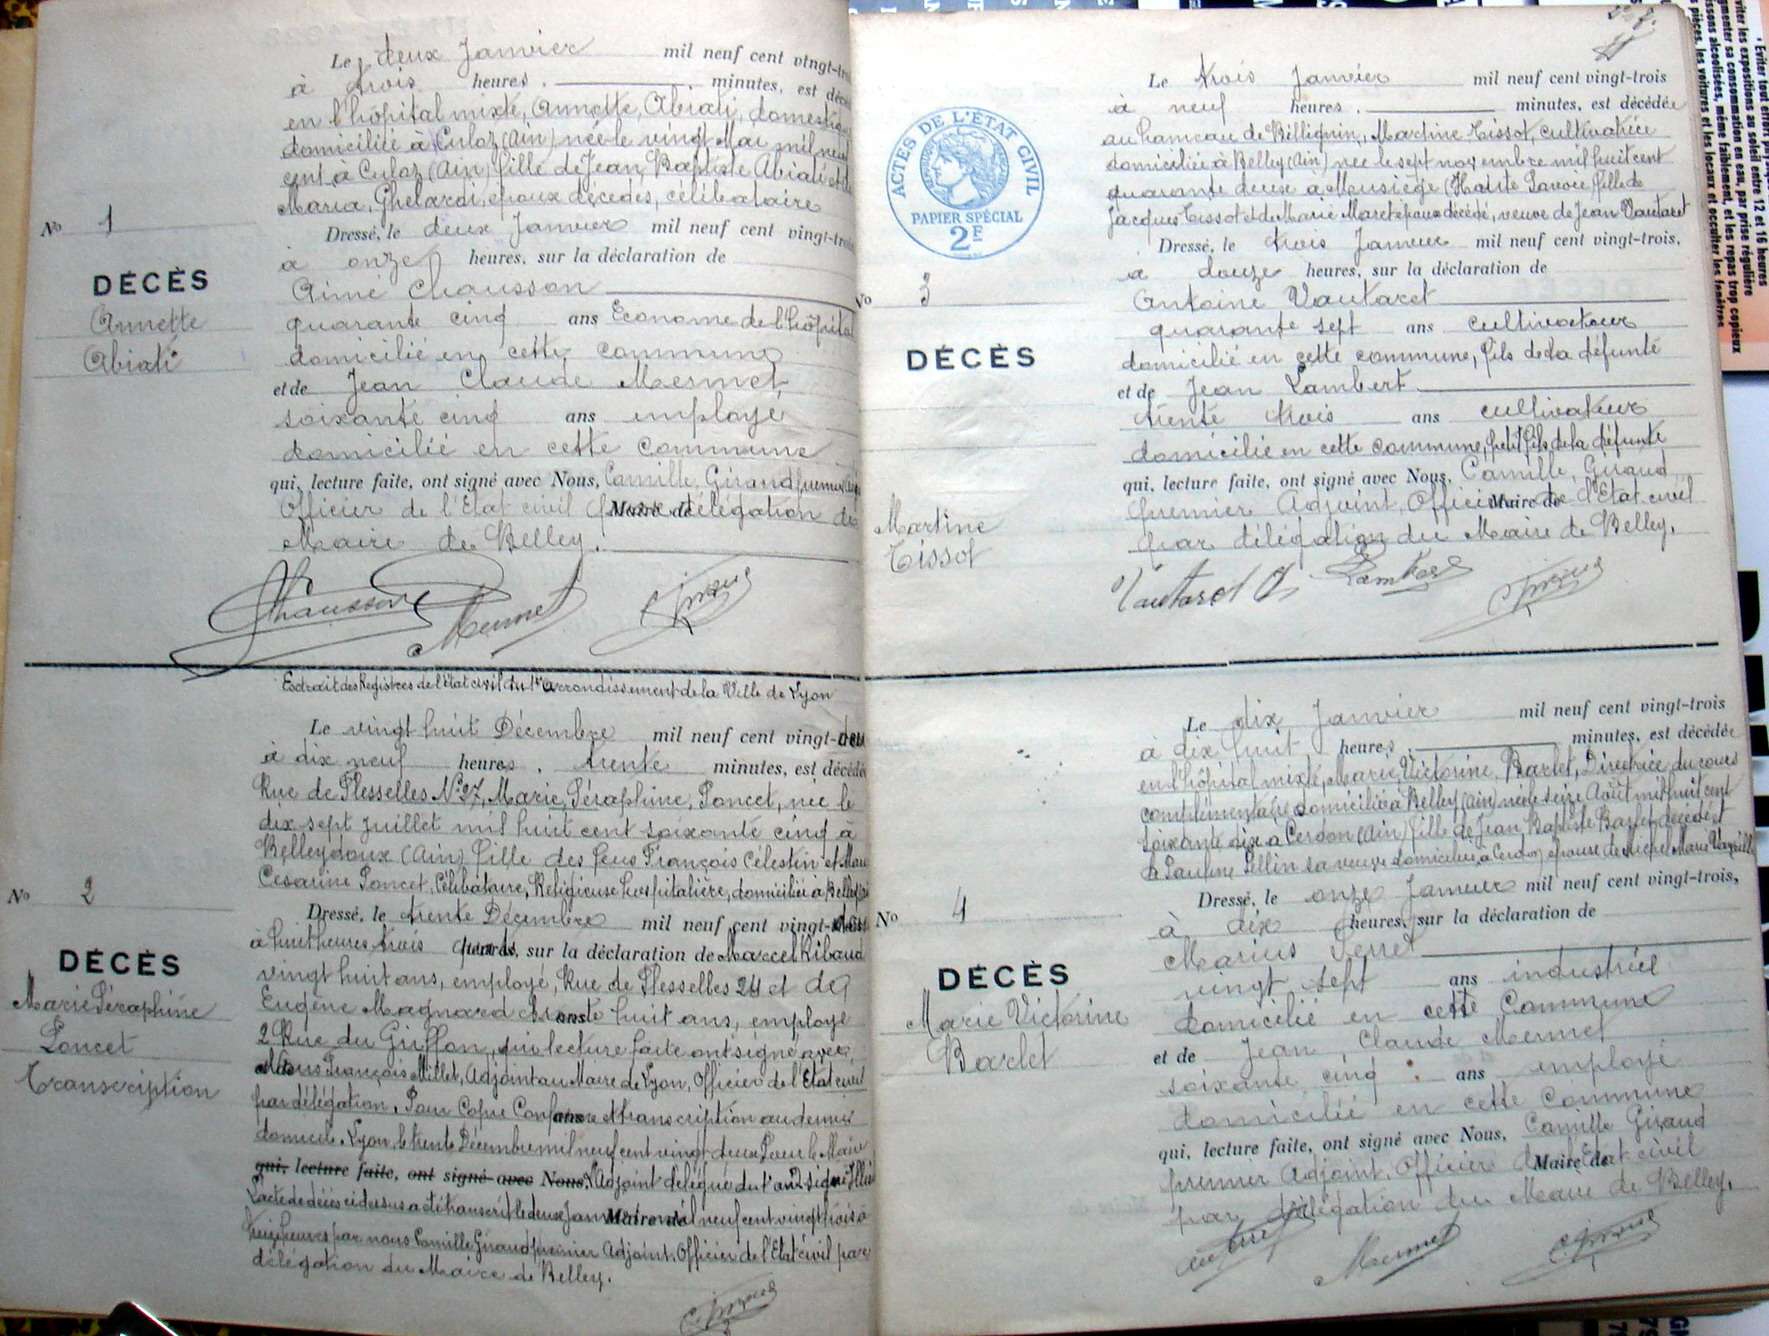 Le deux Janvier mil neuf cent vingt-trois
à trois heures, minutes, est décédée
en l'hôpital mixte, Annette, Abiati, domestique
domiciliée à Culoz (Ain) née le vingt Mai mil neuf
cent à Culoz (Ain) fille de Jean Baptiste Abiati et de
Maria, Ghelardi, époux décédés, célibataire
Dressé, le deux Janvier mil neuf cent vingt-trois
à onze heures, sur la déclaration de
Aimé Chausson
quarante cinq ans Econome de l'hôpital
domicilié en cette commune
et de Jean Claude Mermet
soixante cinq ans employé
domicilié en cette commune
qui, lecture faite, ont signé avec Nous, Camille, Giraud premier
Officier de l'Etat civil par Maire de délégation du
Maire de Belley.
Chausson Mermet C. Giraud
No 1
DÉCÈS
Annette
Abiati
Extrait des Registres de l'état civil du 1er arrondissement de la Ville de Lyon
Le vingt huit Décembre mil neuf cent vingt-deux
à dix neuf heures, trente minutes, est décédée
Rue de Flesselles No 27, Marie, Séraphine, Poncet, née le
dix sept juillet mil huit cent soixante cinq à
Belleydoux (Ain) fille des feus François Célestin et
Cesarine Poncet, Célibataire, Religieuse hospitalière, domiciliée à Belley
Dressé, le trente Décembre mil neuf cent vingt-deux
à huit heures trois quarts, sur la déclaration de Marcel Ribaud
vingt huit ans, employé, Rue de Flesselles 24 et de
Eugène Magnard trente huit ans, employé
2 Rue du Griffon, qui lecture faite ont signé avec
Nous François Millet, Adjoint au Maire de Lyon, Officier de l'Etat civil
par délégation. Pour Copie Conforme et transcription au dernier
domicile. Lyon, le trente Décembre mil neuf cent vingt deux Pour le Maire
qui, lecture faite, ont signé avec Nous, L'Adjoint délégué du 1er arrt signé
L'acte de décès ci dessus a été transcrit le deux Janvier Maire de mil neuf cent vingt trois à
heures par nous Camille Giraud premier Adjoint, Officier de l'Etat civil par
délégation du Maire de Belley.
C. Giraud
No 2
DÉCÈS
Marie Séraphine
Poncet
Transcription
ACTES DE L'ÉTAT CIVIL
PAPIER SPÉCIAL
2F
Le trois Janvier mil neuf cent vingt-trois
à neuf heures, minutes, est décédée
au hameau de Billignin, Martine Tissot, cultivatrice
domiciliée à Belley (Ain) née le sept novembre mil huit cent
quarante deux à Meusiège (Haute Savoie) fille de
Jacques Tissot et de Marie Maret époux décédés, veuve de Jean Vautaret
Dressé, le trois Janvier mil neuf cent vingt-trois,
à douze heures, sur la déclaration de
Antoine Vautaret
quarante sept ans cultivateur
domicilié en cette commune, fils de la défunte
et de Jean Lambert
trente trois ans cultivateur
domicilié en cette commune, petit fils de la défunte
qui, lecture faite, ont signé avec Nous, Camille, Giraud
premier Adjoint, Officier Maire de de l'Etat civil
par délégation du Maire de Belley.
Vautaret A. Lambert C. Giraud
No 3
DÉCÈS
Martine
Tissot
Le dix Janvier mil neuf cent vingt-trois
à dix huit heures, minutes, est décédée
en l'hôpital mixte, Marie, Victorine, Barlet, Directrice du cours
complémentaire domiciliée à Belley (Ain) née le seize Août mil huit cent
soixante dix à Cerdon (Ain) fille de Jean Baptiste Barlet décédé et
de sa veuve domiciliée à Cerdon, épouse de Marie
Dressé, le onze Janvier mil neuf cent vingt-trois,
à dix heures, sur la déclaration de
Marius Perret
vingt sept ans industriel
domicilié en cette Commune
et de Jean, Claude Mermet
soixante cinq ans employé
domicilié en cette Commune
qui, lecture faite, ont signé avec Nous, Camille Giraud
premier Adjoint, Officier Maire de de l'Etat civil
par délégation du Maire de Belley.
Mermet C. Giraud
No 4
DÉCÈS
Marie Victorine
Barlet